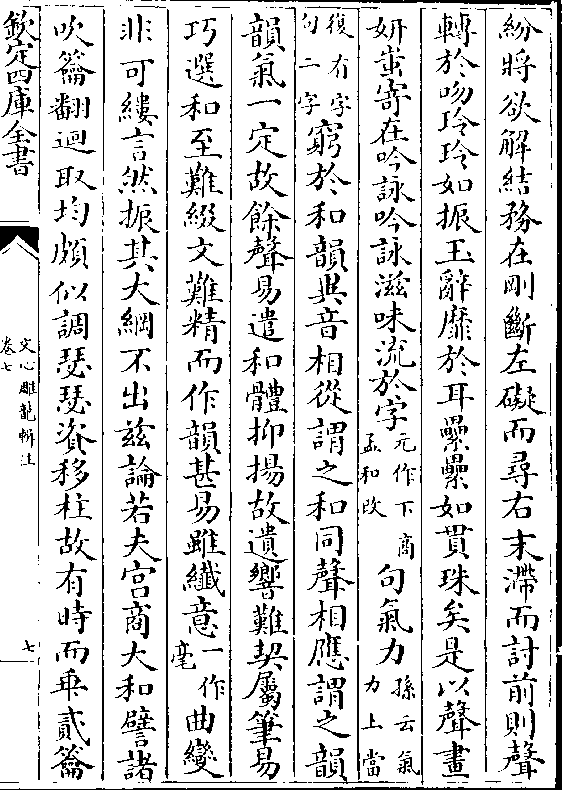 紛將欲解結務在剛斷左礙而尋右末滯而討前則聲
轉於吻玲玲如振玉辭靡於耳纍纍如貫珠矣是以聲畫
妍蚩寄在吟詠吟詠滋味流於字元作下商孟和改句氣力孫云氣力上當
復有字句二字窮於和韻異音相從謂之和同聲相應謂之韻
韻氣一定故餘聲易遣和體抑揚故遺響難契屬筆易
巧選和至難綴文難精而作韻甚易雖纖意一作毫曲變
非可縷言然振其大綱不出兹論若夫宮商大和譬諸
吹籥翻迴取均頗似調瑟瑟資移柱故有時而乖貳籥
欽定四庫全書
文心雕龍輯注
卷七
七